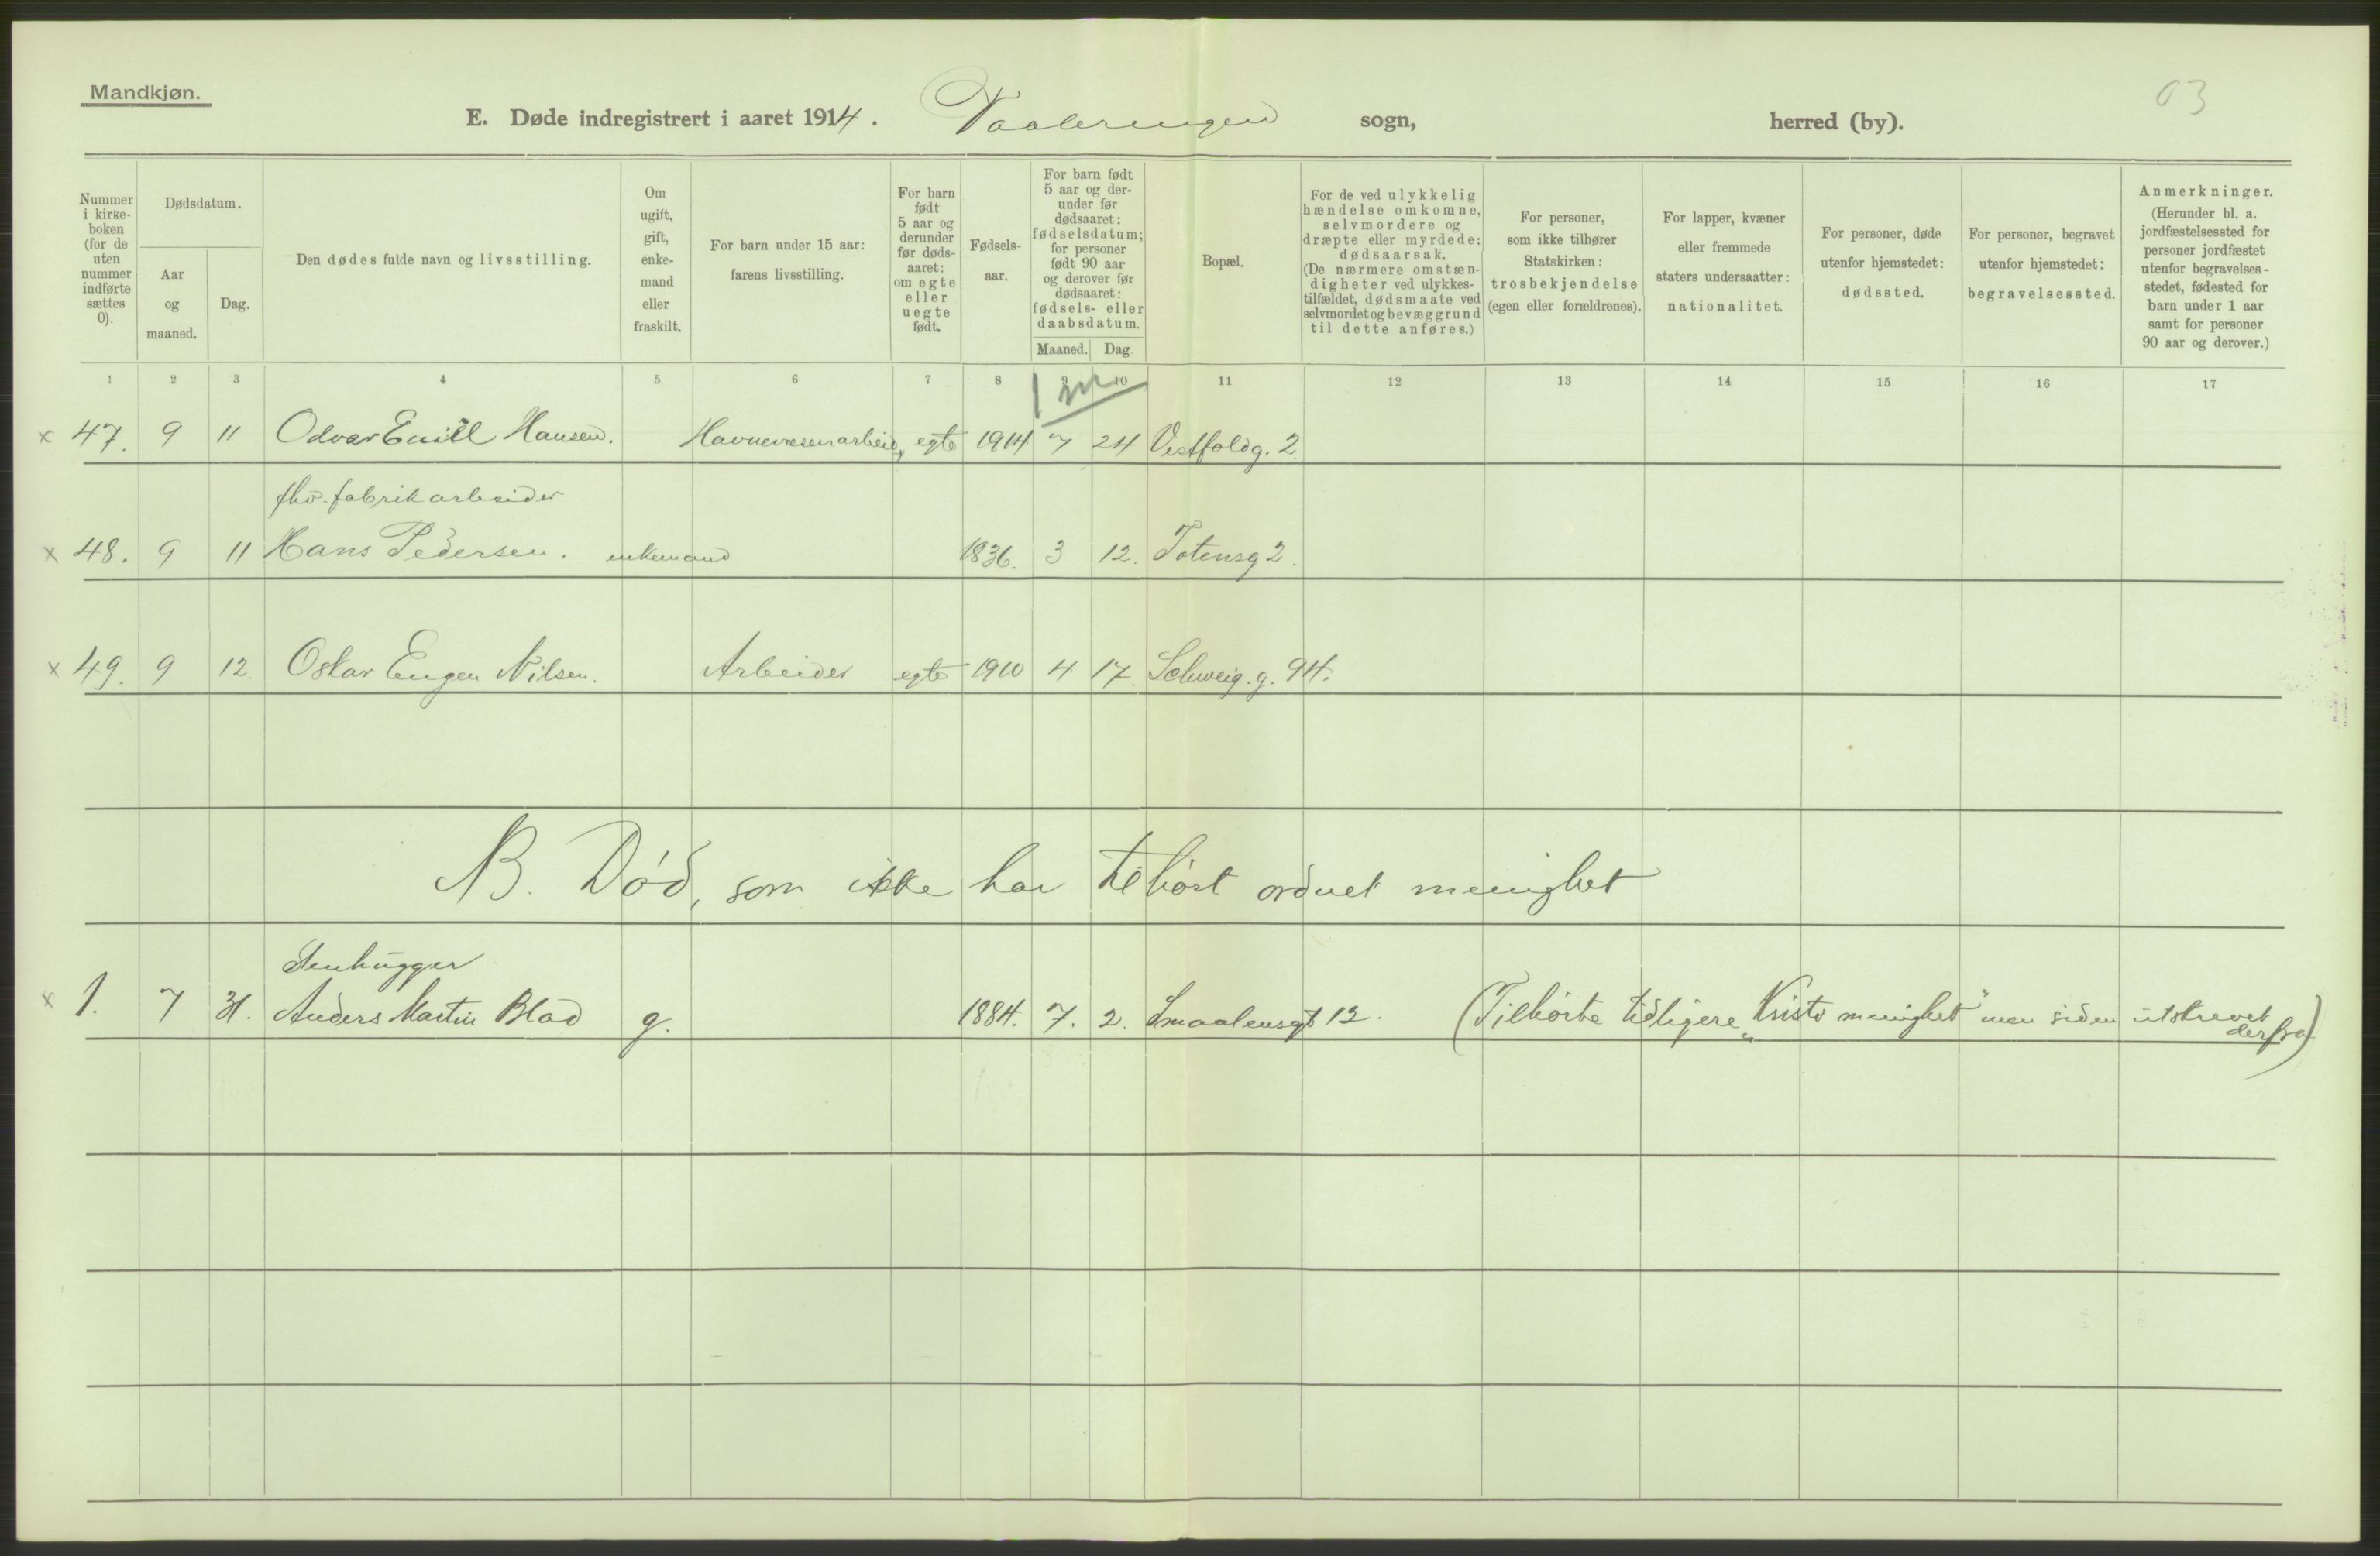 Mandkjøn.
03
E. Døde indregistrert i aaret 1914. Vaalerengen sogn, herred (by).
Nummer i kirke-boken (for de uten nummer indførte sættes 0).
Dødsdatum.
Aar og maaned.
Dag.
Den dødes fulde navn og livsstilling.
Om ugift, gift, enke-mand eller fraskilt.
For barn under 15 aar: farens livsstilling.
For barn født 5 aar og derunder før døds-aaret: om egte eller uegte født.
Fødsels-aar.
For barn født 5 aar og der-under før dødsaaret: fødselsdatum; for personer født 90 aar og derover før dødsaaret: fødsels- eller daabsdatum.
Maaned. Dag.
Bopæl.
For de ved ulykkelig hændelse omkomne, selvmordere og dræpte eller myrdede: dødsaarsak. (De nærmere omstæn-digheter ved ulykkes-tilfældet, dødsmaate ved selvmordet og bevæggrund til dette anføres.)
For personer, som ikke tilhører Statskirken: trosbekjendelse (egen eller forældrenes).
For lapper, kvæner eller fremmede staters undersaatter: nationalitet.
For personer, døde utenfor hjemstedet: dødssted.
For personer, begravet utenfor hjemstedet: begravelsessted.
Anmerkninger. (Herunder bl. a. jordfæstelsessted for personer jordfæstet utenfor begravelses-stedet, fødested for barn under 1 aar samt for personer 90 aar og derover.)
1 2 3 4 5 6 7 8 9 10 11 12 13 14 15 16 17
1 m
x 47. 9 11 Odvar Emil Hansen. Havnevæsenarbeid, egte 1914 7 24 Vestfoldg. 2.
fhv. fabrikarbeider
x 48. 9 11 Hans Pedersen. enkemand 1836. 3 12. Totensg 2.
x 49. 9 12 Oskar Eugen Nilsen. Arbeider egte 1910 4 17. Schweig. g. 94.
B. Død, som ikke har tilhørt ordnet menighet
Stenhugger
x 1. 7 31. Anders Martin Blad g. 1884. 7. 2. Smaalensgt 12. (Tilhørte tidligere „Kristi menighet" men siden utskrevet
derfra)